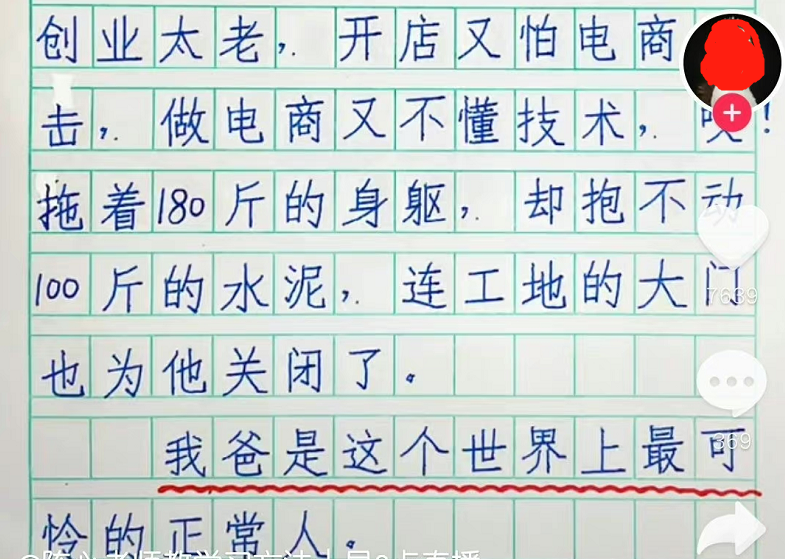 创业太老，开店又怕电商
击，做电商又不懂技术，唉！
拖着180斤的身躯，却抱不动
100斤的水泥，连工地的大门
也为他关闭了。
我爸是这个世界上最可
怜的正常人。
7639
369